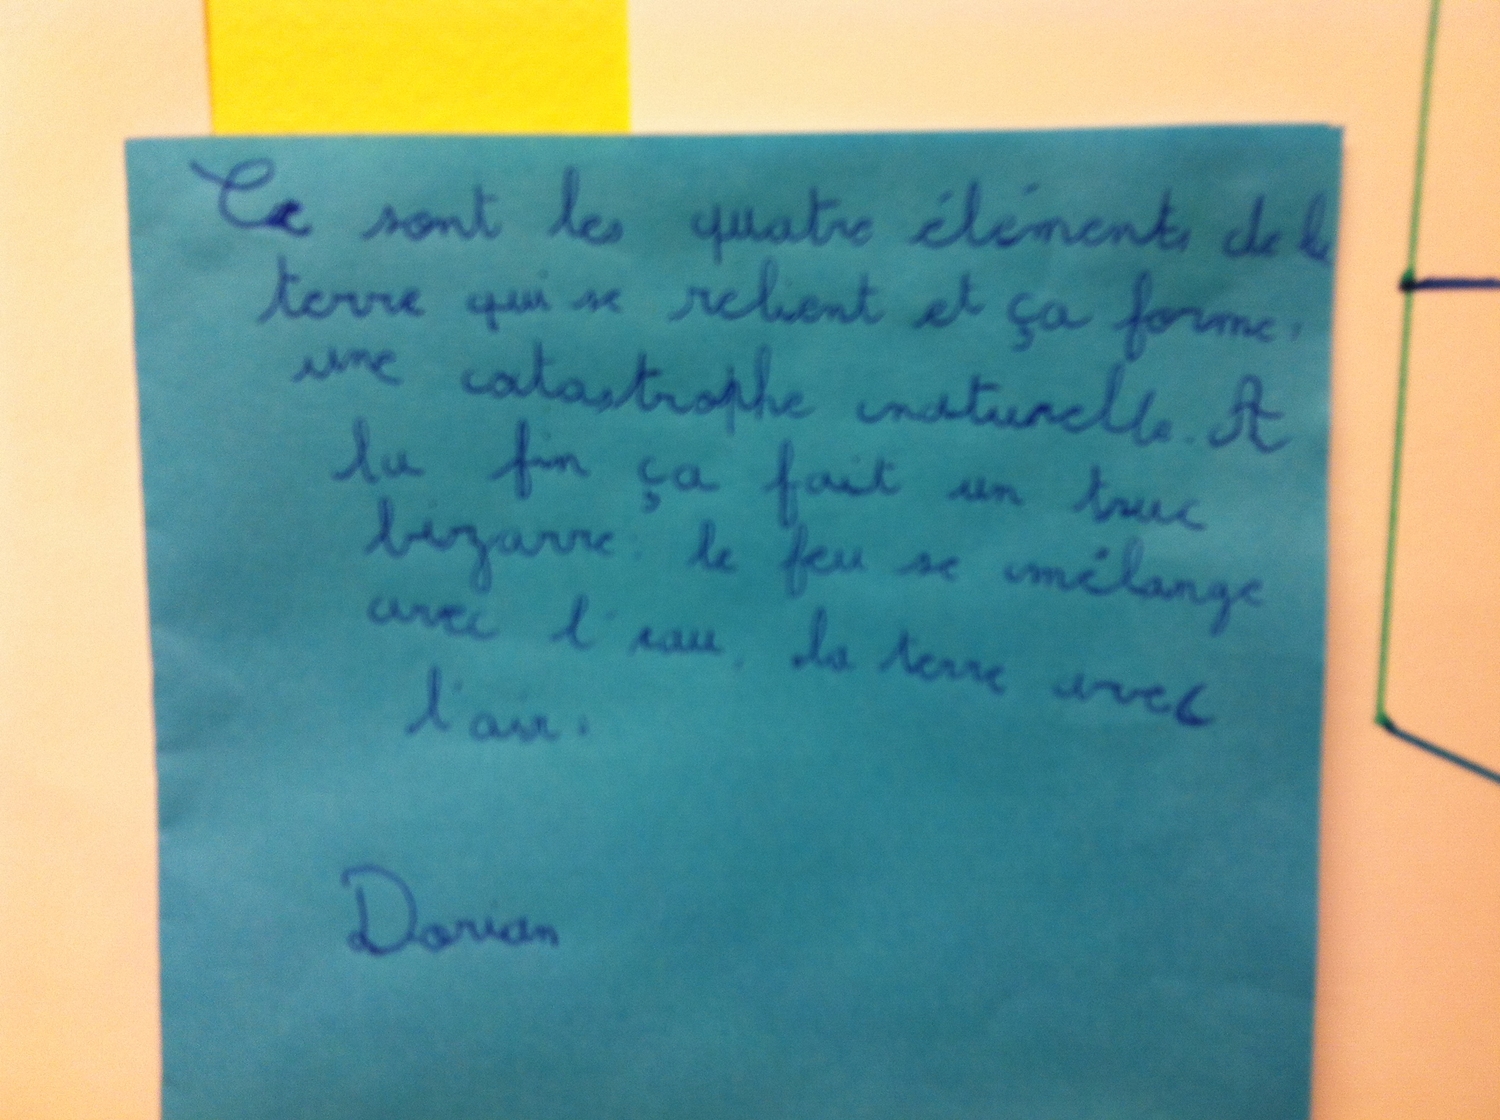 Ce sont les quatre éléments de la
terre qui se relient et ça forme
une catastrophe naturelle. A
la fin ça fait un truc
bizarre : le feu se mélange
avec l'eau, la terre avec
l'air.
Dorian